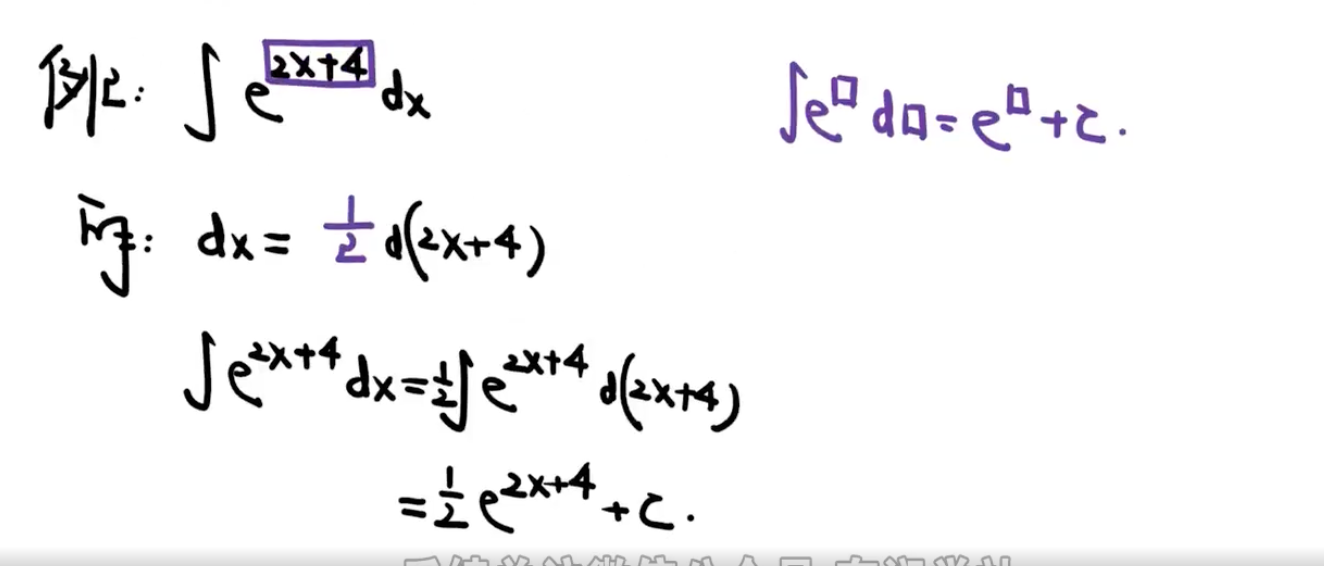 例2: ∫e^{2x+4} dx
∫e^□ d□ = e^□ + C.
解: dx = \frac{1}{2} d(2x+4)
∫e^{2x+4} dx = \frac{1}{2}∫e^{2x+4} d(2x+4)
= \frac{1}{2} e^{2x+4} + C.